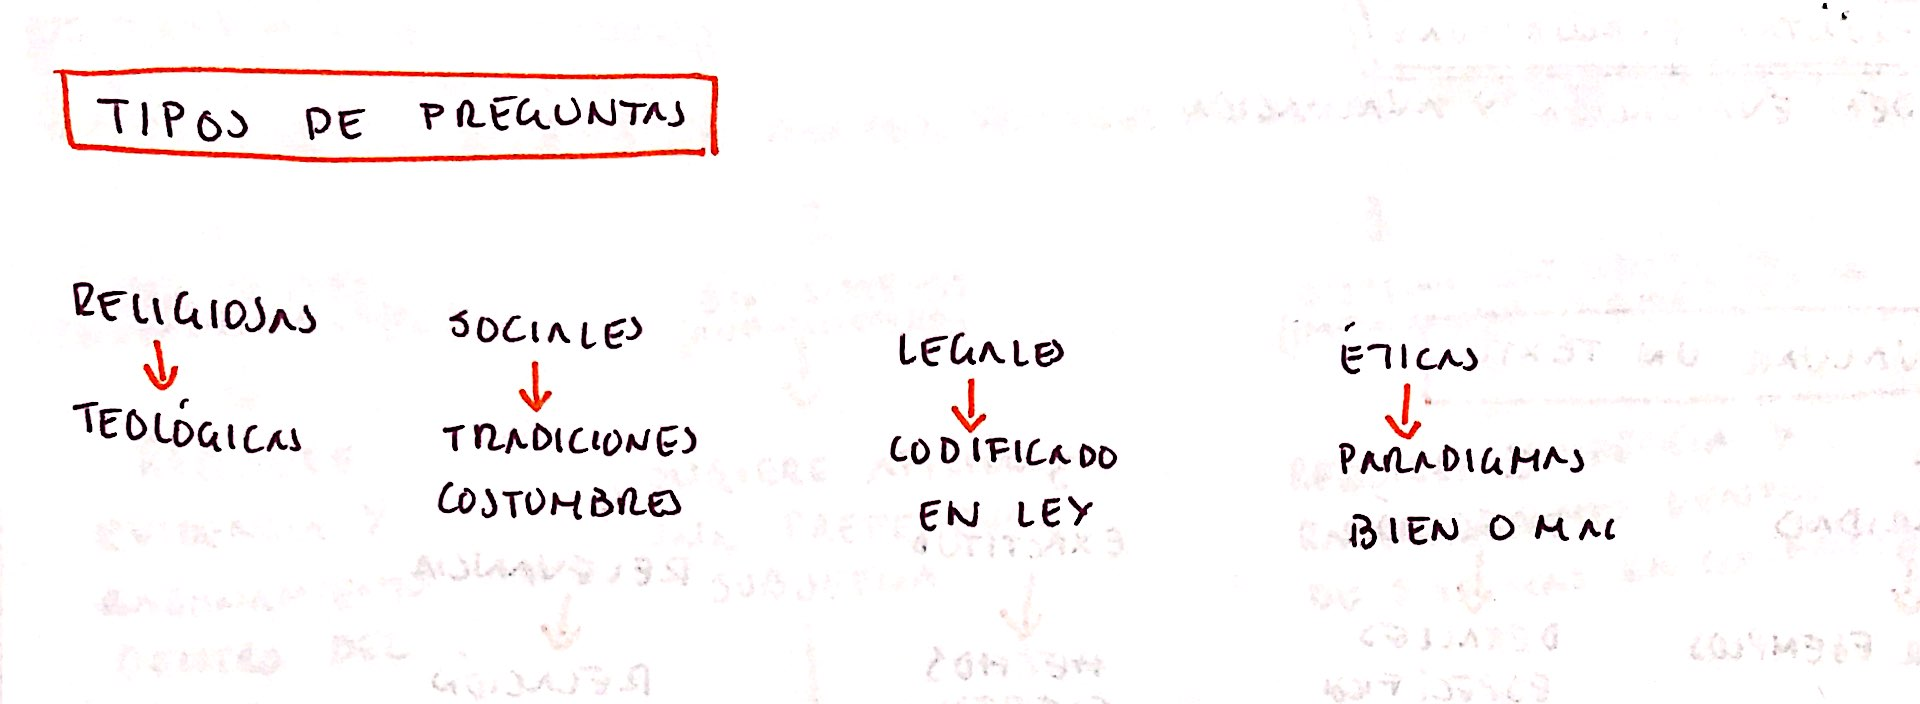 TIPOS DE PREGUNTAS
RELIGIOSAS
TEOLÓGICAS
SOCIALES
TRADICIONES
COSTUMBRES
LEGALES
CODIFICADO
EN LEY
ÉTICAS
PARADIGMAS
BIEN O MAL